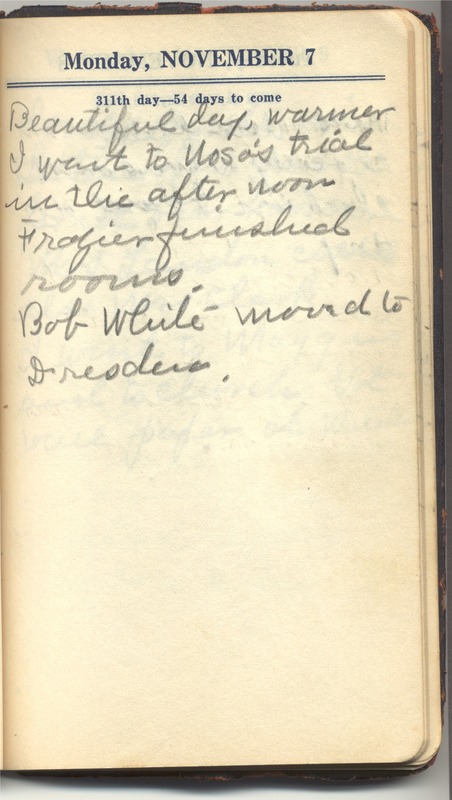 Monday, NOVEMBER 7
311th day—54 days to come
Beautiful day, warmer
I went to Noso's trial
in the after noon
Frazier finished
rooms.
Bob White moved to
Dresden.